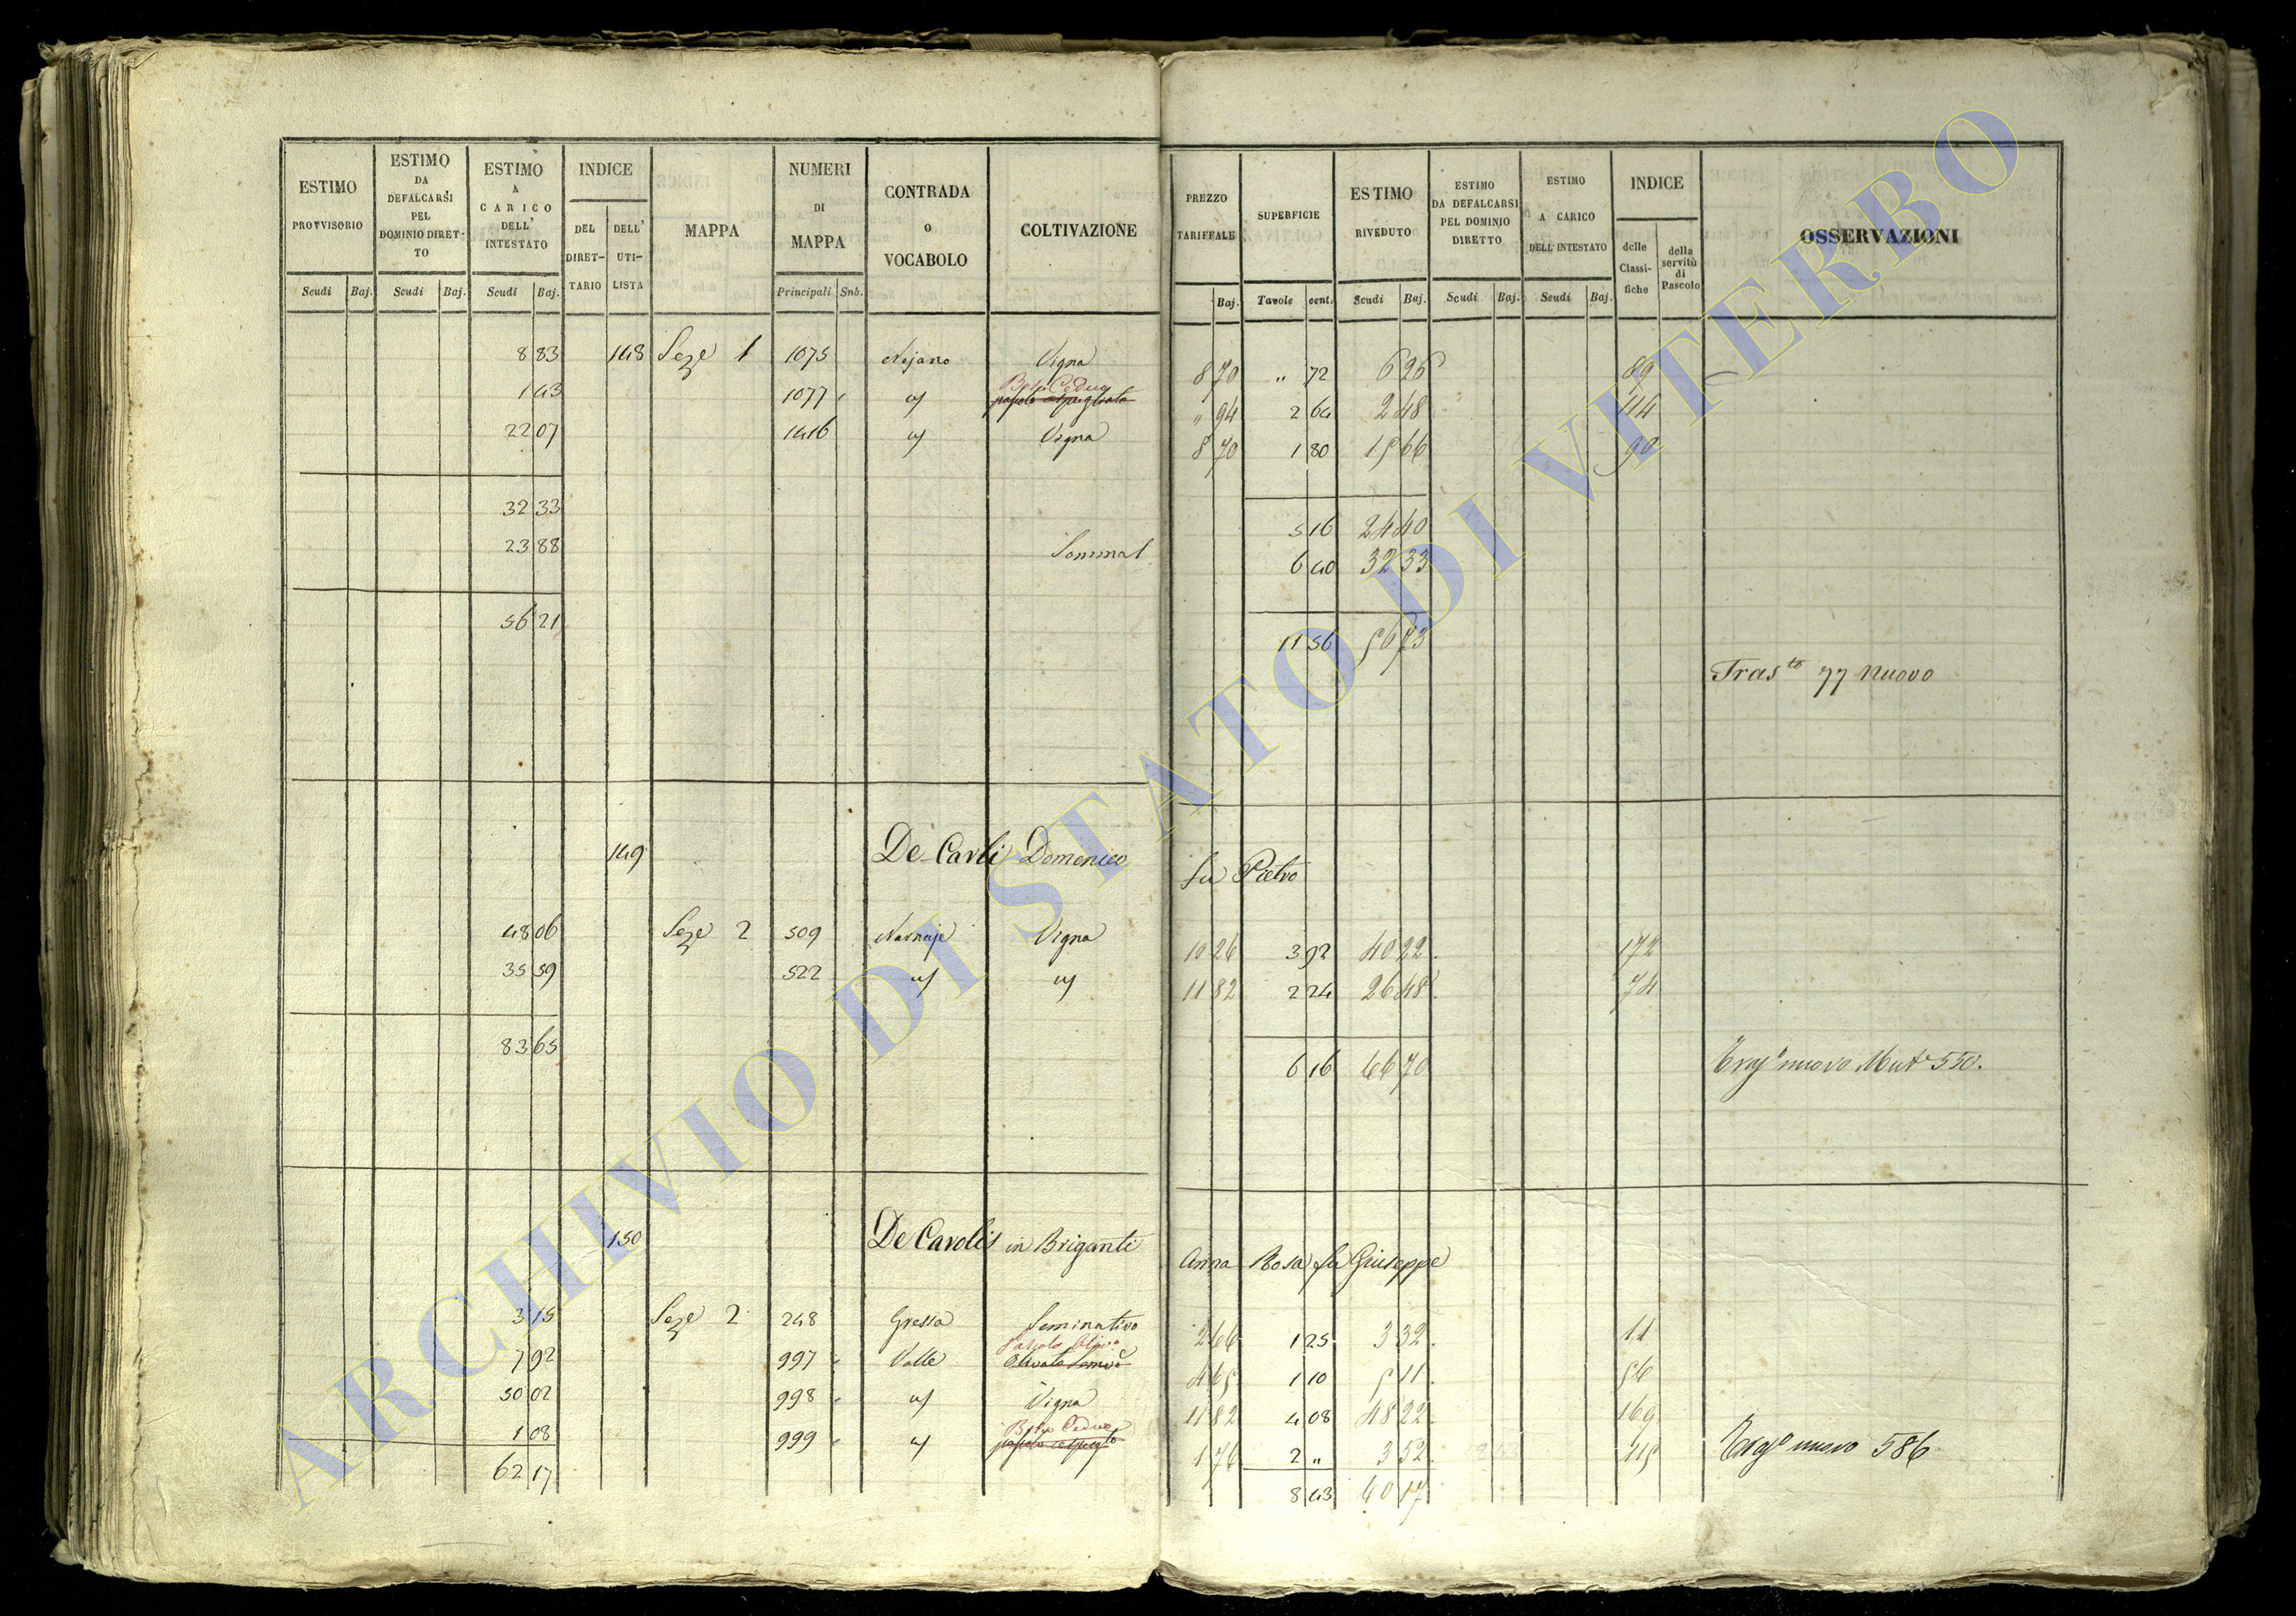 ESTIMO PROVVISORIO | ESTIMO DA DEFALCARSI PEL DOMINIO DIRETTO | ESTIMO A CARICO DELL' INTESTATO | INDICE | MAPPA | NUMERI DI MAPPA | CONTRADA o VOCABOLO | COLTIVAZIONE | PREZZO TARIFFALE | SUPERFICIE | ESTIMO RIVEDUTO | ESTIMO DA DEFALCARSI PEL DOMINIO DIRETTO | ESTIMO A CARICO DELL'INTESTATO | INDICE | OSSERVAZIONI
DEL DIRET-TARIO | DELL' UTI-LISTA | delle Classi-fiche | della servitù di Pascolo
Scudi | Baj. | Scudi | Baj. | Scudi | Baj. | Principali | Sub. | Baj. | Tavole | cent. | Scudi | Baj. | Scudi | Baj. | Scudi | Baj.
8 83 | 148 | Seze 1 | 1075 | Nojano | Vigna | 8 70 | " 72 | 6 26 | 89
1 43 | 1077 | " | Bosco Ceduo | " 94 | 2 64 | 2 48 | 114
22 07 | 1416 | " | Vigna | 8 70 | 1 80 | 15 66 | 90
32 33 | 5 16 | 24 40
23 88 | Sommat | 6 40 | 32 33
56 21 | 11 56 | 56 73
Tras.to 77 nuovo
149 | De Carli Domenico fu Pietro
48 06 | Seze 2 | 509 | Vigna | 10 26 | 3 92 | 40 22 | 172
35 59 | 522 | " | " | 11 82 | 2 24 | 26 48 | 74
83 65 | 6 16 | 66 70 | nuovo Mut.e 550.
150 | De Carolis in Briganti Anna Rosa fu Giuseppe
3 15 | Seze 2 | 248 | Gressa | Seminativo | 2 66 | 1 25 | 3 32 | 11
7 92 | 997 | Valle | Pascolo Oliv.o | 4 65 | 1 10 | 5 11 | 56
50 02 | 998 | " | Vigna | 11 82 | 4 08 | 48 22 | 169
1 08 | 999 | " | Bosco Ceduo | 1 76 | 2 " | 3 52 | 115 | nuovo 586
62 17 | 8 43 | 60 17
ARCHIVIO DI STATO DI VITERBO